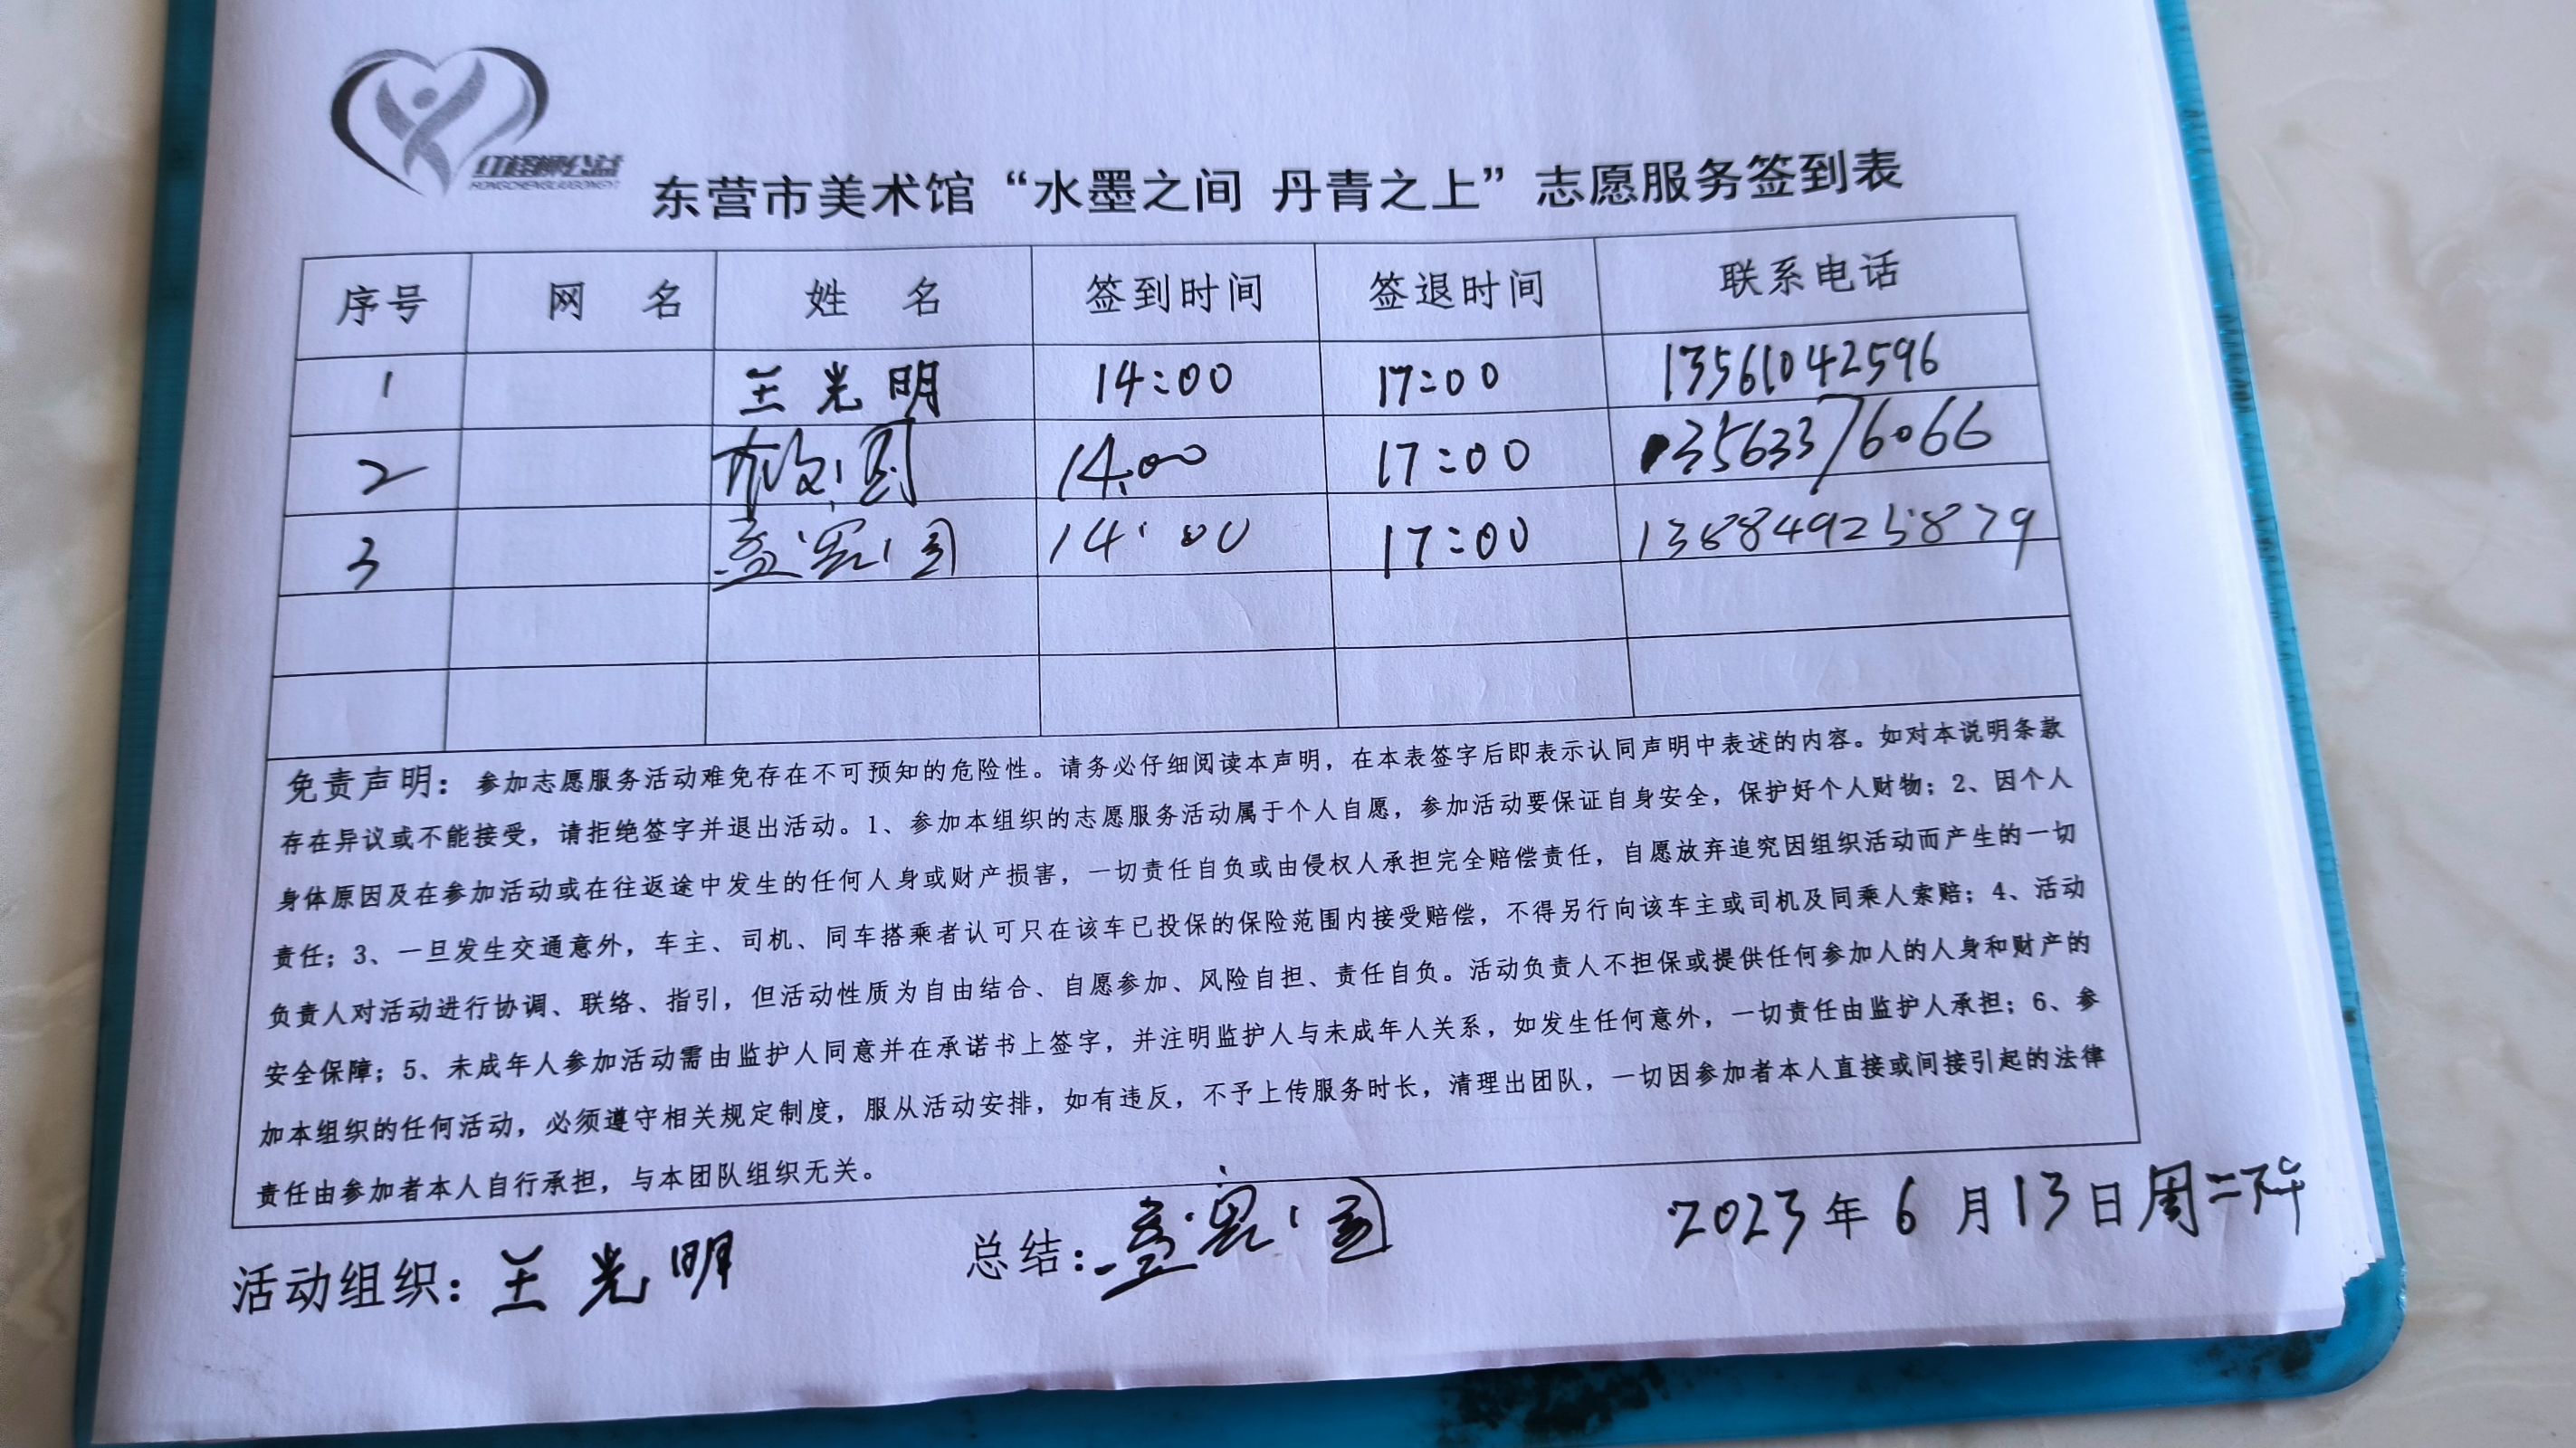 红柽柳公益
HONGCHENGLIUGONGYI
东营市美术馆“水墨之间 丹青之上”志愿服务签到表
序号 网 名 姓 名 签到时间 签退时间 联系电话
1 王光明 14:00 17:00 13561042596
2 14:00 17:00 13563376066
3 14:00 17:00 13684925879
免责声明：参加志愿服务活动难免存在不可预知的危险性。请务必仔细阅读本声明，在本表签字后即表示认同声明中表述的内容。如对本说明条款
存在异议或不能接受，请拒绝签字并退出活动。1、参加本组织的志愿服务活动属于个人自愿，参加活动要保证自身安全，保护好个人财物；2、因个人
身体原因及在参加活动或在往返途中发生的任何人身或财产损害，一切责任自负或由侵权人承担完全赔偿责任，自愿放弃追究因组织活动而产生的一切
责任；3、一旦发生交通意外，车主、司机、同车搭乘者认可只在该车已投保的保险范围内接受赔偿，不得另行向该车主或司机及同乘人索赔；4、活动
负责人对活动进行协调、联络、指引，但活动性质为自由结合、自愿参加、风险自担、责任自负。活动负责人不担保或提供任何参加人的人身和财产的
安全保障；5、未成年人参加活动需由监护人同意并在承诺书上签字，并注明监护人与未成年人关系，如发生任何意外，一切责任由监护人承担；6、参
加本组织的任何活动，必须遵守相关规定制度，服从活动安排，如有违反，不予上传服务时长，清理出团队，一切因参加者本人直接或间接引起的法律
责任由参加者本人自行承担，与本团队组织无关。
活动组织：王光明 总结： 2023年6月13日周二下午